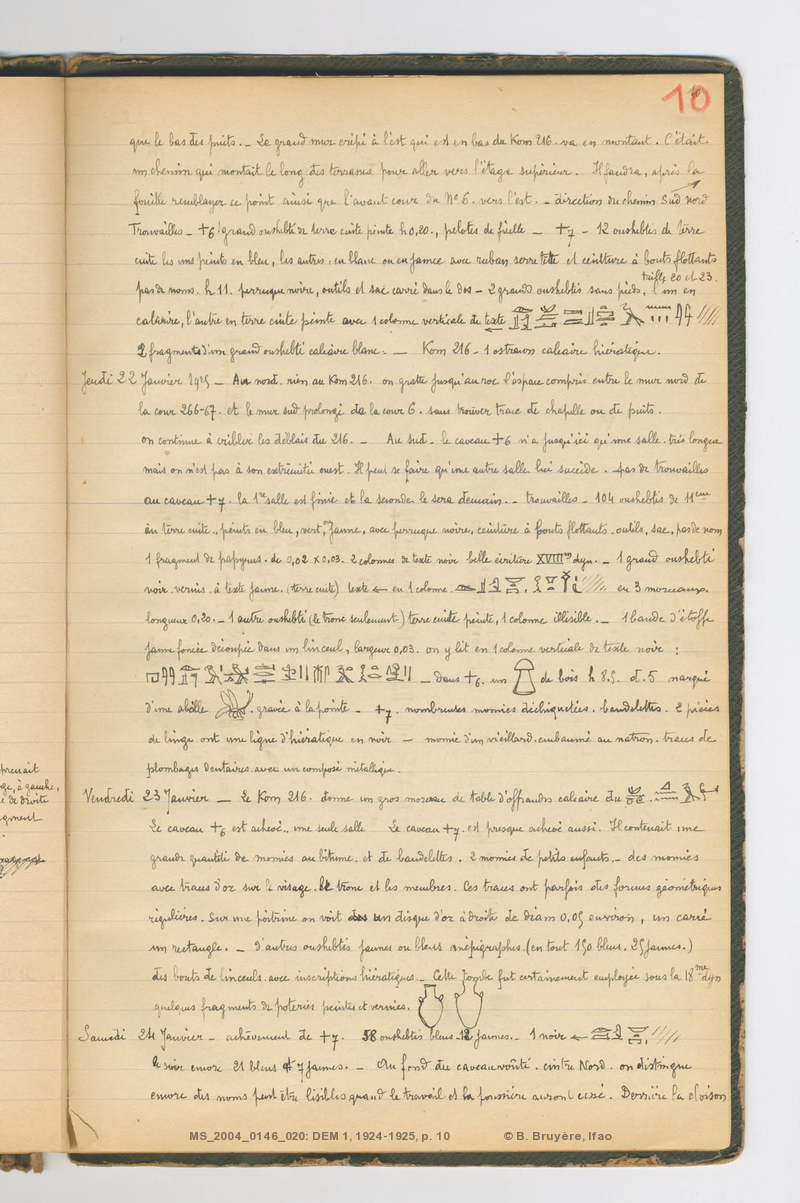 10
que le bas des puits. _ Le grand mur crépi à l'est qui est en bas du Kom 216. va en montant. C'était
un chemin qui montait le long des terrasses pour aller vers l'étage supérieur. Il faudra, après la
fouille remblayer ce point ainsi que l'avant cour du N° 6. vers l'est. _ direction du chemin Sud Nord
Trouvailles _ +6 1 grand oushebti de terre cuite peinte h 0,20., pelotes de ficelle _ +7 - 12 oushebtis de terre
cuite les uns peints en bleu, les autres, en blanc ou en jaune avec ruban serre tête et ceinture à bouts flottants
pas de noms. h 11. perruque noire, outils et sac carré dans le dos _ 2 grands oushebtis sans pieds, l'un en
taille 20 et 23.
calcaire, l'autre en terre cuite peinte avec 1 colonne verticale de texte
2 fragments d'un grand oushebti calcaire blanc. _ Kom 216 - 1 ostracon calcaire hiératique.
Jeudi 22 Janvier 1925 _ Au nord. rien au Kom 216. on gratte jusqu'au roc l'espace compris entre le mur nord de
la cour 266-67. et le mur sud prolongé de la cour 6. sans trouver trace de chapelle ou de puits.
on continue à cribler les déblais du 216. _ Au sud. le caveau +6 n'a jusqu'ici qu'une salle. très longue
mais on n'est pas à son extrémité ouest. Il peut se faire qu'une autre salle lui succède. pas de trouvailles
au caveau +7. la 1re salle est finie et la seconde le sera demain. _ trouvailles _ 104 oushebtis de 11cm
en terre cuite, peints en bleu, vert, jaune, avec perruque noire, ceinture à bouts flottants. outils, sac, pas de nom
1 fragment de papyrus. de 0,02 x 0,03. 2 colonnes de texte noir belle écriture XVIIIe dyn. _ 1 grand oushebti
noir verni. à texte jaune. (terre cuite) texte ← en 1 colonne. en 3 morceaux.
longueur 0,20. _ 1 autre oushebti (le tronc seulement) terre cuite peinte, 1 colonne illisible. _ 1 bande d'étoffe
jaune foncée découpée dans un linceul, largeur 0,03. on y lit en 1 colonne verticale de texte noir :
_ dans +6. un de bois h 8.5. d. 5 marqué
d'une abeille gravée à la pointe _ +7. nombreuses momies déchiquetées. bandelettes. 2 pièces
de linge ont une ligne d'hiératique en noir _ momie d'un vieillard embaumé au natron. traces de
plombages dentaires avec un composé métallique.
Vendredi 23 Janvier _ Le Kom 216. donne un gros morceau de table d'offrandes calcaire du
Le caveau +6 est achevé.. une seule salle Le caveau +7. est presque achevé aussi. Il contenait une
grande quantité de momies au bitume. et de bandelettes. 2 momies de petits enfants. _ des momies
avec traces d'or sur le visage. le tronc et les membres. Ces traces ont parfois des formes géométriques
régulières. Sur une poitrine on voit un disque d'or à droite de diam 0,05 environ, un carré
un rectangle. _ D'autres oushebtis jaunes ou bleus anépigraphes. (en tout 150 bleus. 25 jaunes.)
des bouts de linceuls avec inscriptions hiératiques. _ Cette tombe fut certainement employée sous la 18me dyn
quelques fragments de poteries peintes et vernies.
Samedi 24 Janvier _ achèvement de +7. 58 oushebtis bleus. 12 jaunes. _ 1 noir ←
le soir encore 21 bleus et 7 jaunes. _ Au fond du caveau voûté. cintre Nord. on distingue
encore des noms peut être lisibles quand le travail et la poussière auront cessé. Derrière la cloison
prenait
ge, à gauche,
de droite
gment
MS_2004_0146_020: DEM 1, 1924-1925, p. 10 © B. Bruyère, Ifao